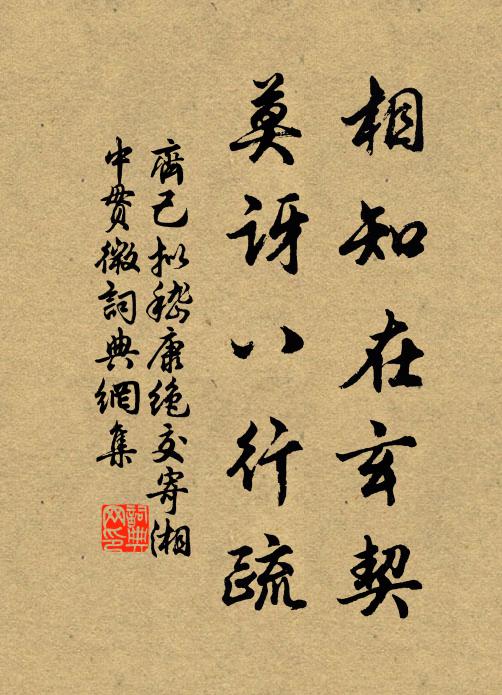 相知在玄契
莫讶八行疏
齊己拟嵇康绝交寄湘
中贯微詞典網集
詞典网印